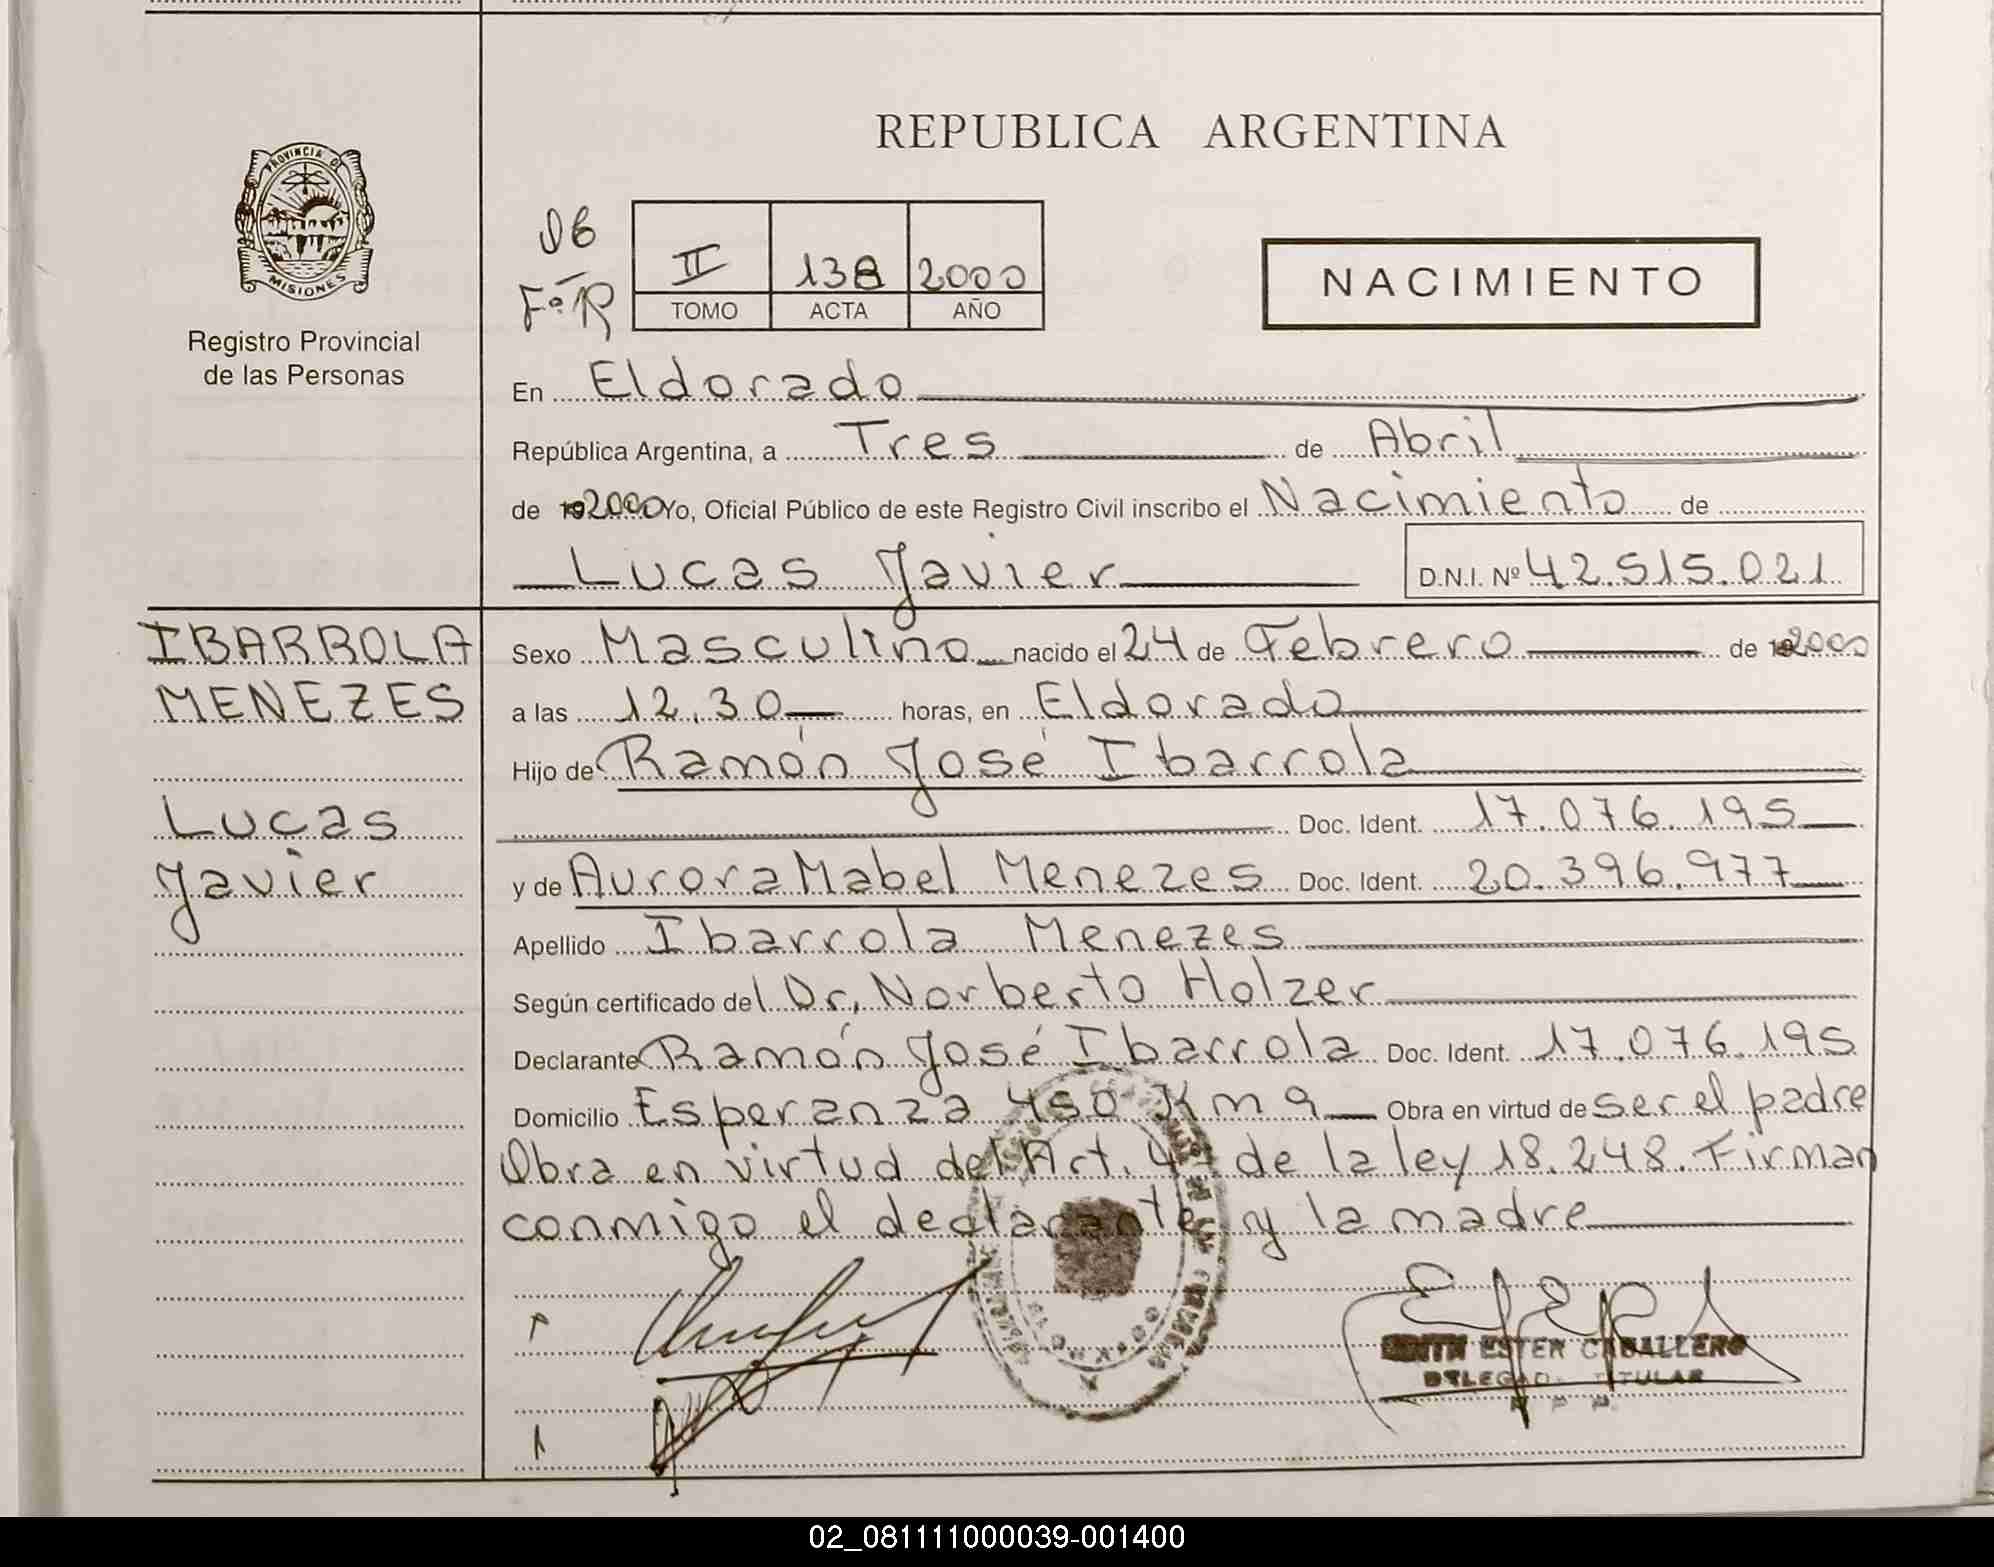 REPUBLICA ARGENTINA
PROVINCIA DE
MISIONES
Registro Provincial
de las Personas
06
Fº R
II 138 2000
TOMO ACTA AÑO
NACIMIENTO
En Eldorado
República Argentina, a Tres de Abril
de 2000 Yo, Oficial Público de este Registro Civil inscribo el Nacimiento de
Lucas Javier D.N.I. Nº 42.515.021
IBARROLA
MENEZES
Lucas
Javier
Sexo Masculino nacido el 24 de Febrero de 2000
a las 12.30 horas, en Eldorado
Hijo de Ramón José Ibarrola
Doc. Ident. 17.076.195
y de Aurora Mabel Menezes Doc. Ident. 20.396.977
Apellido Ibarrola Menezes
Según certificado del Dr. Norberto Holzer
Declarante Ramón José Ibarrola Doc. Ident. 17.076.195
Domicilio Esperanza 450 Km 9 Obra en virtud de ser el padre
Obra en virtud del Art. 4º de la ley 18.248. Firman
conmigo el declarante y la madre
ESTER CABALLERO
TITULAR
02_081111000039-001400